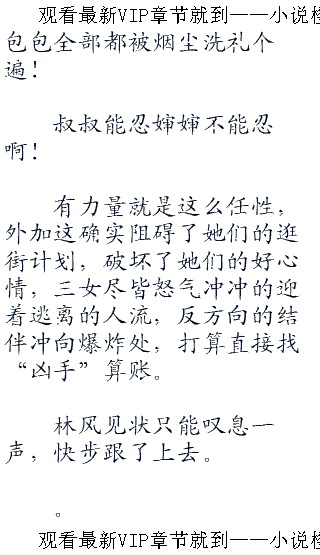 观看最新VIP章节就到——小说检
包包全部都被烟尘洗礼个
遍！
叔叔能忍婶婶不能忍
啊！
有力量就是这么任性，
外加这确实阻碍了她们的逛
街计划，破坏了她们的好心
情，三女尽皆怒气冲冲的迎
着逃离的人流，反方向的结
伴冲向爆炸处，打算直接找
“凶手”算账。
林风见状只能叹息一
声，快步跟了上去。
。
观看最新VIP章节就到——小说检